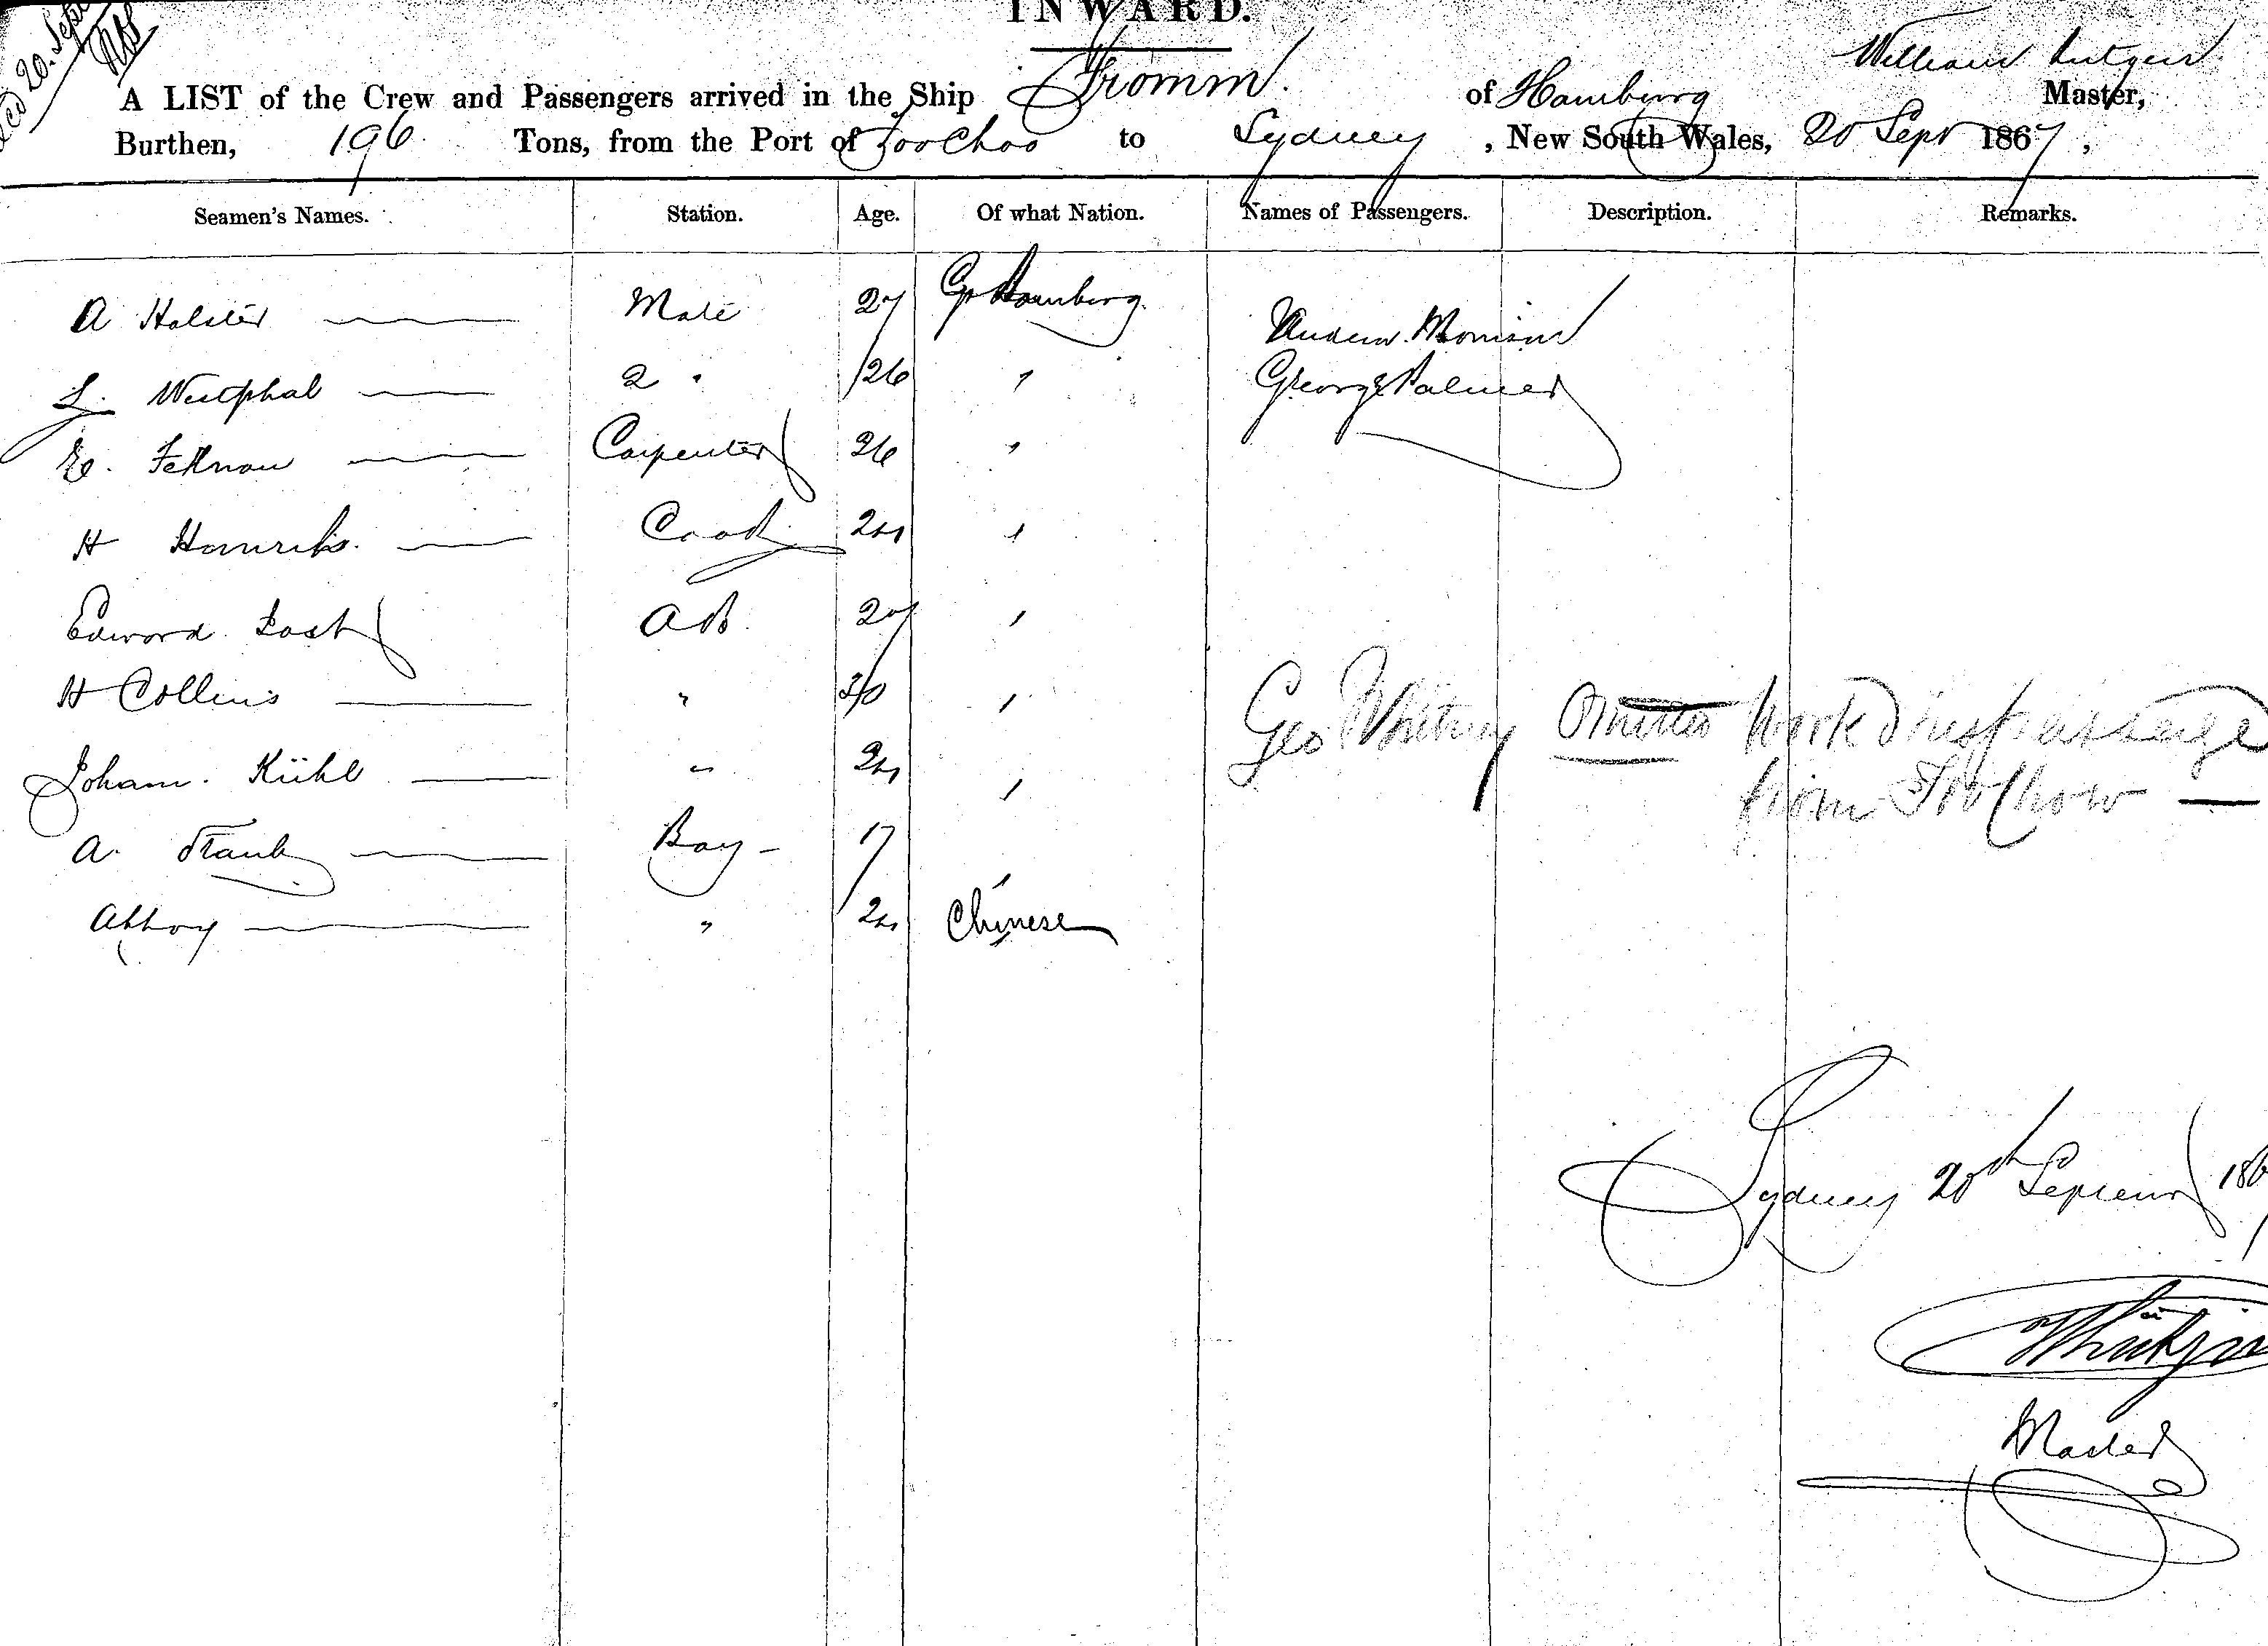 INWARD.
20. Sept
William Lutgens
A LIST of the Crew and Passengers arrived in the Ship Fromm. of Hamburg Master,
Burthen, 196 Tons, from the Port of FooChoo to Sydney, New South Wales, 20 Sept 1867,
Seamen's Names. Station. Age. Of what Nation. Names of Passengers. Description. Remarks.
A Holster Mate 27 Hamburg
Andrew Morrison
Westphal 2 " 26 "
George Palmer
Carpenter 26 "
H Cook 24 "
Edward Last AB. 27 "
H Collins " 30 "
Geo Whitney Omitted Work'd his passage
from FooChow —
Johann. Kühl " 24 "
A. Boy - 17 "
Ahhoy " 24 Chinese
Sydney 20th September 186
Master